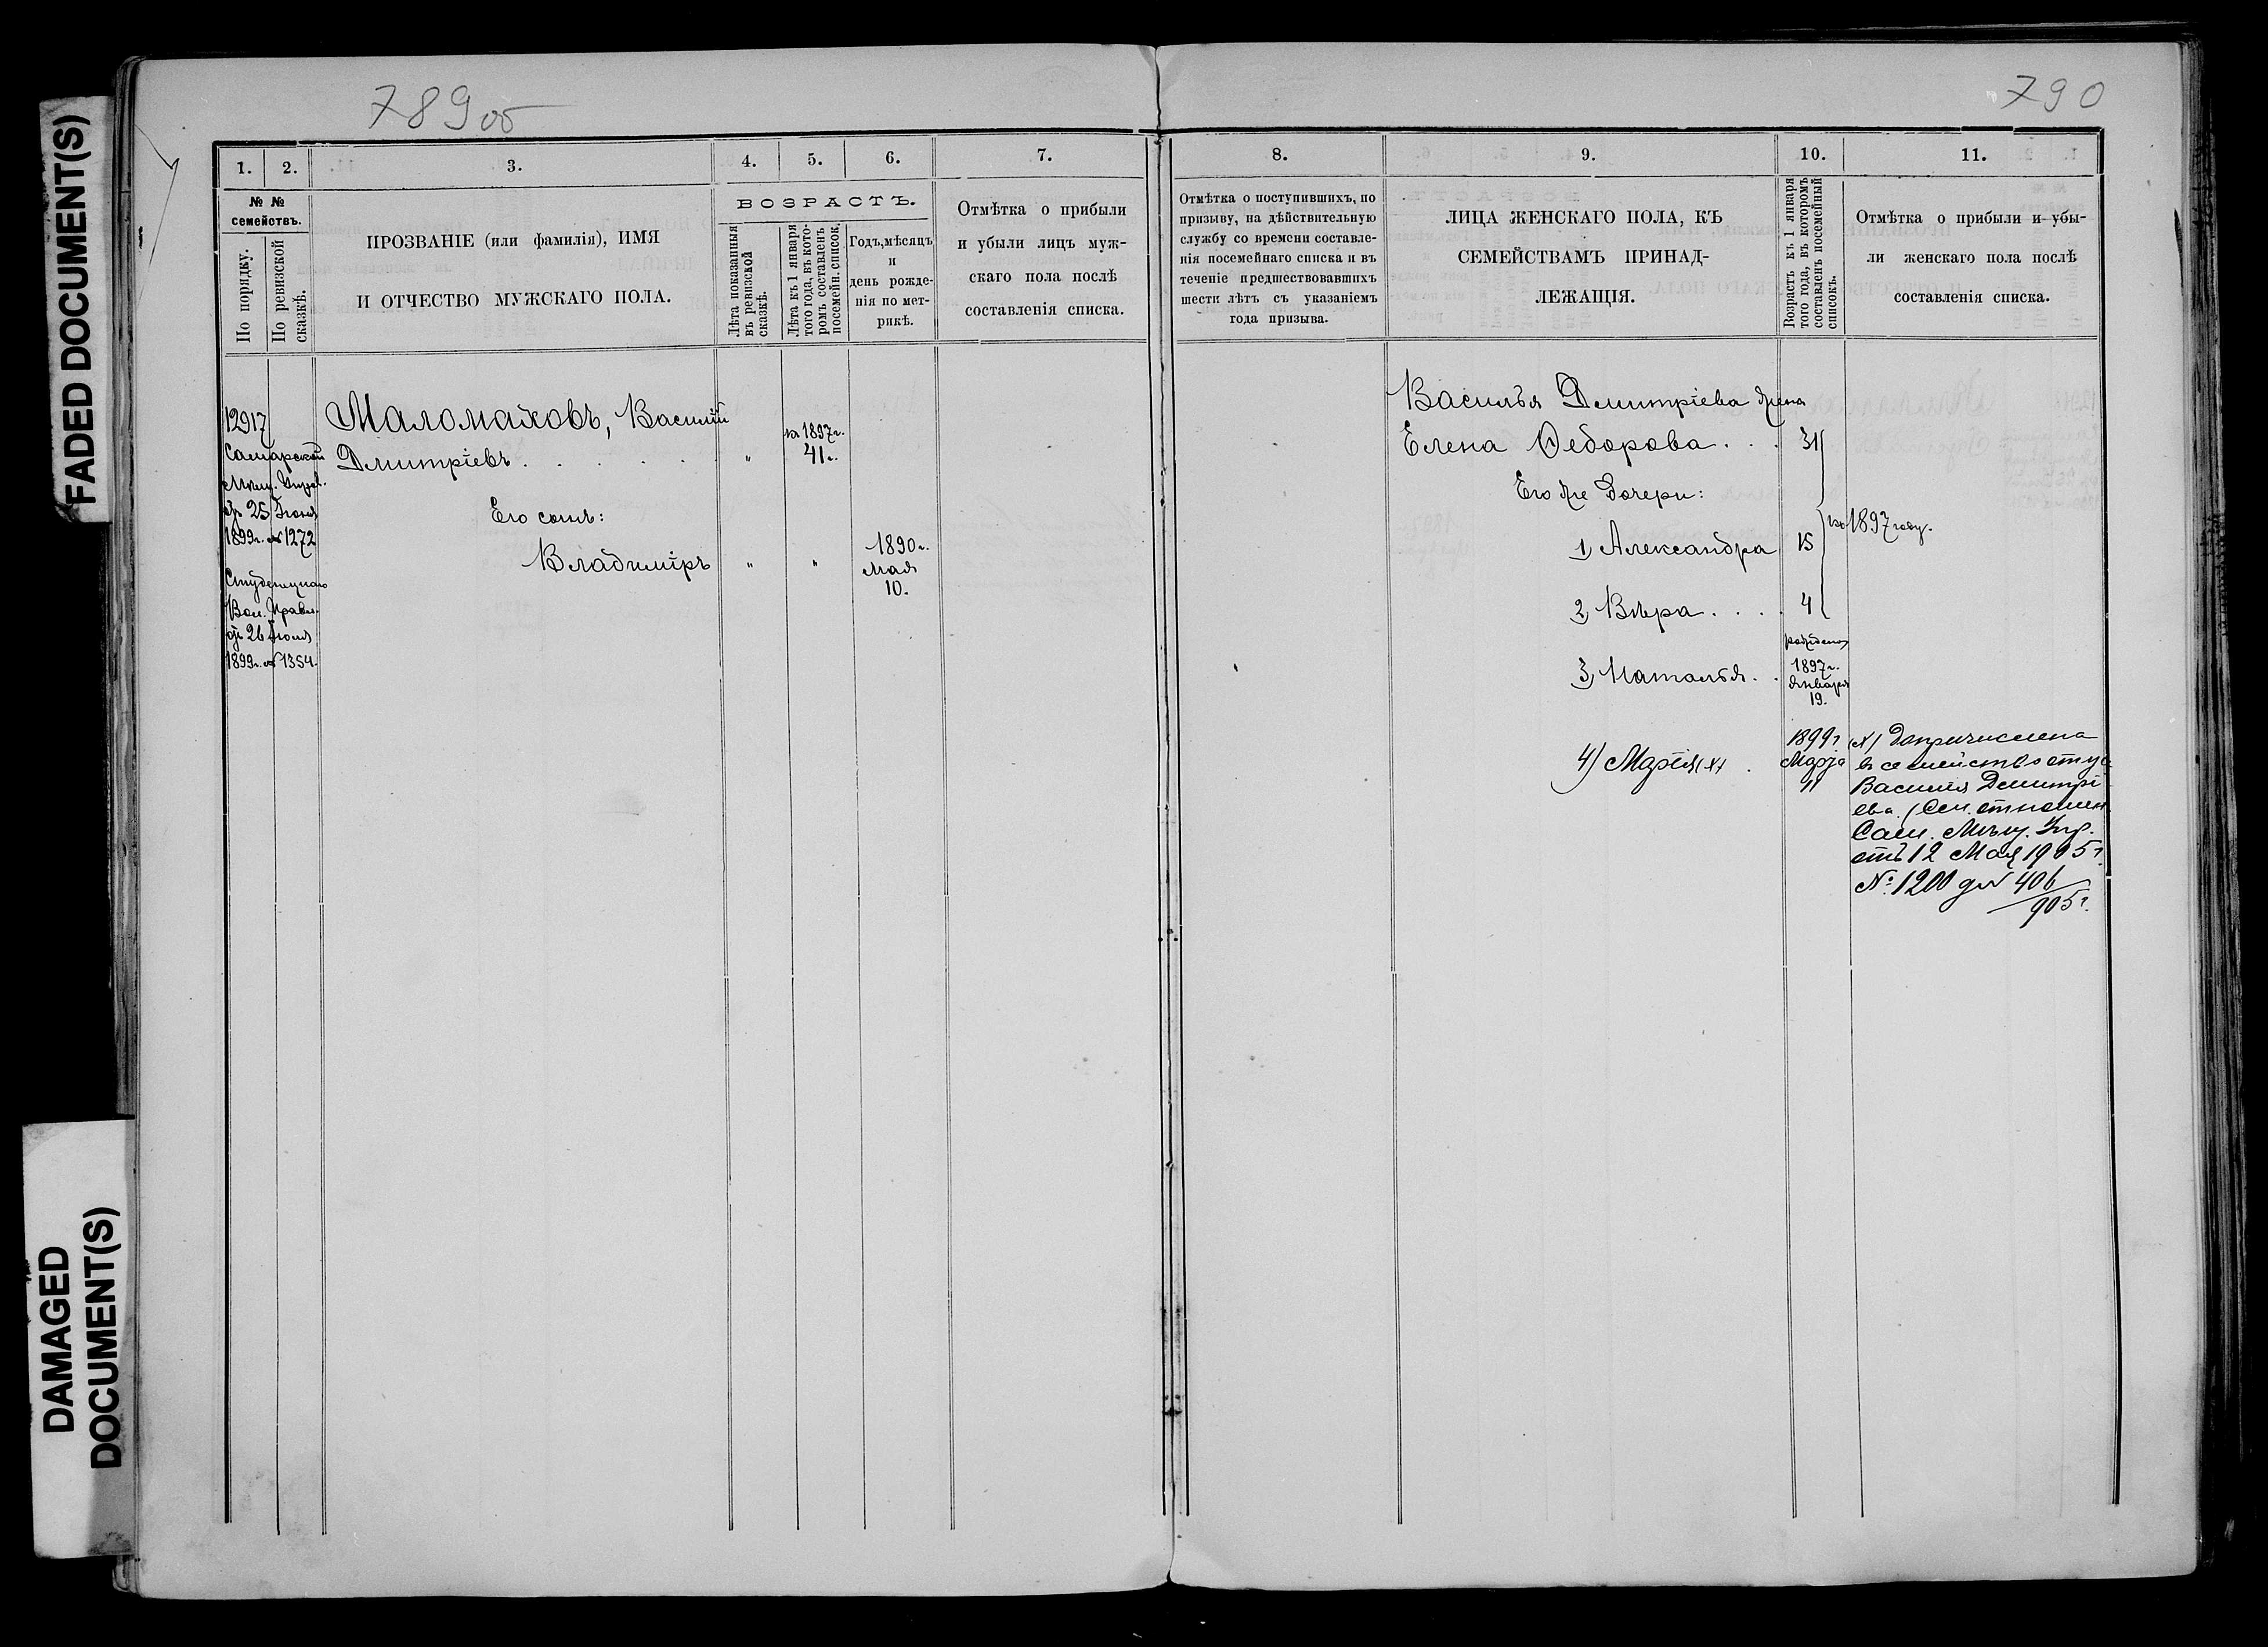 FADED DOCUMENT(S)
DAMAGED
DOCUMENT(S)
789об
790
1.
2.
3.
4.
5.
6.
7.
№ №
семействъ.
По порядку.
По ревизской
сказкѣ.
ПРОЗВАНІЕ (или фамилія), ИМЯ
И ОТЧЕСТВО МУЖСКАГО ПОЛА.
ВОЗРАСТЪ.
Лѣта показанныя
въ ревизской
сказкѣ.
Лѣта къ 1 января
того года, въ кото-
ромъ составленъ
посемейн. списокъ.
Годъ, мѣсяцъ
и
день рожде-
нія по мет-
рикѣ.
Отмѣтка о прибыли
и убыли лицъ муж-
скаго пола послѣ
составленія списка.
12917
Самарской
Мѣщ. Управ.
отъ 25 Іюня
1899г. № 1272
Вол. Правл.
отъ 26 Іюня
1899г. № 1354.
Маломаховъ, Василій
Дмитріевъ . . . . . . "
къ 1897г.
41г.
Его сынъ:
Владиміръ " "
1890г.
Мая
10.
8.
9.
10.
11.
Отмѣтка о поступившихъ, по
призыву, на дѣйствительную
службу со времени составле-
нія посемейнаго списка и въ
теченіе предшествовавшихъ
шести лѣтъ съ указаніемъ
года призыва.
ЛИЦА ЖЕНСКАГО ПОЛА, КЪ
СЕМЕЙСТВАМЪ ПРИНАД-
ЛЕЖАЩІЯ.
Возрастъ къ 1 января
того года, въ которомъ
составленъ посемейный
списокъ.
Отмѣтка о прибыли и убы-
ли женскаго пола послѣ
составленія списка.
Василья Дмитріева жена
Елена Ѳедорова . . . 31
Его же дочери:
1, Александра 15
къ 1897 году.
2, Вѣра . . . . 4
3, Наталья . .
рождена
1897г.
Января
19.
4) Марія (х) .
1899г
Марта
11
(х) Допричислена
въ семейство отца
Василія Дмитрі-
ева. (См. отношен.
Сам. Мѣщ. Упр.
отъ 12 Мая 1905г.
№ 1200 д № 406
905г.